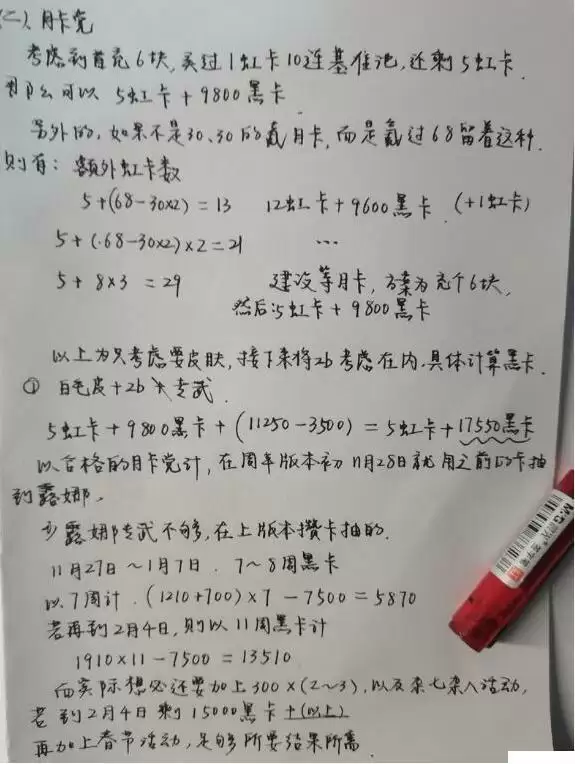 (二)、月卡党
考虑到首充6块,买过1虹卡10连基准池,还剩5虹卡.
那么可以 5虹卡+9800黑卡
另外的,如果不是30、30的氪月卡,而是氪过68留着这种.
则有: 额外虹卡数
5+(68-30×2)=13 12虹卡+9600黑卡 (+1虹卡)
5+(68-30×2)×2=21 …
5+8×3=29 建设等月卡,方案为充个6块,
然后:5虹卡+9800黑卡
以上为只考虑要皮肤,接下来将2b考虑在内,具体计算黑卡.
① 白毛皮+2b 专武.
5虹卡+9800黑卡+(11250-3500)=5虹卡+17550黑卡
以合格的月卡党计,在周年版本初11月28日就用之前的卡抽
到露娜.
露娜专武不够,在上版本攒卡抽的.
11月27日~1月7日. 7~8周黑卡
以7周计.(1210+700)×7-7500=5870
若再到2月4日,则以11周黑卡计
1910×11-7500=13510
而实际想必还要加上300×(2~3),以及杂七杂八活动,
若到2月4日剩15000黑卡+(以上)
再加上春节活动,足够所要结果所需.
M&G